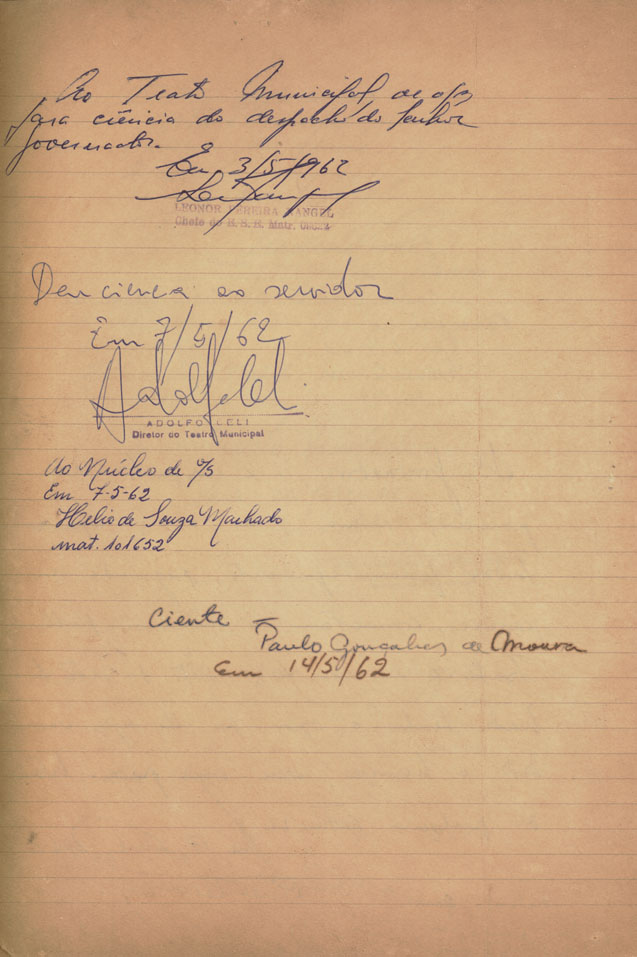 Ao Teatro Municipal, de o/s
para ciência do despacho do Senhor
Governador.
Em 3/5/1962
LEONOR PEREIRA RANGEL
Chefe do
Matr.
Deu ciencia ao servidor
Em 7/5/62
ADOLFO CELI
Diretor do Teatro Municipal
Ao Núcleo de o/s
Em 7-5-62
Helio de Souza Machado
mat. 101652
Ciente –
Paulo Gonçalves de Moura
Em 14/5/62